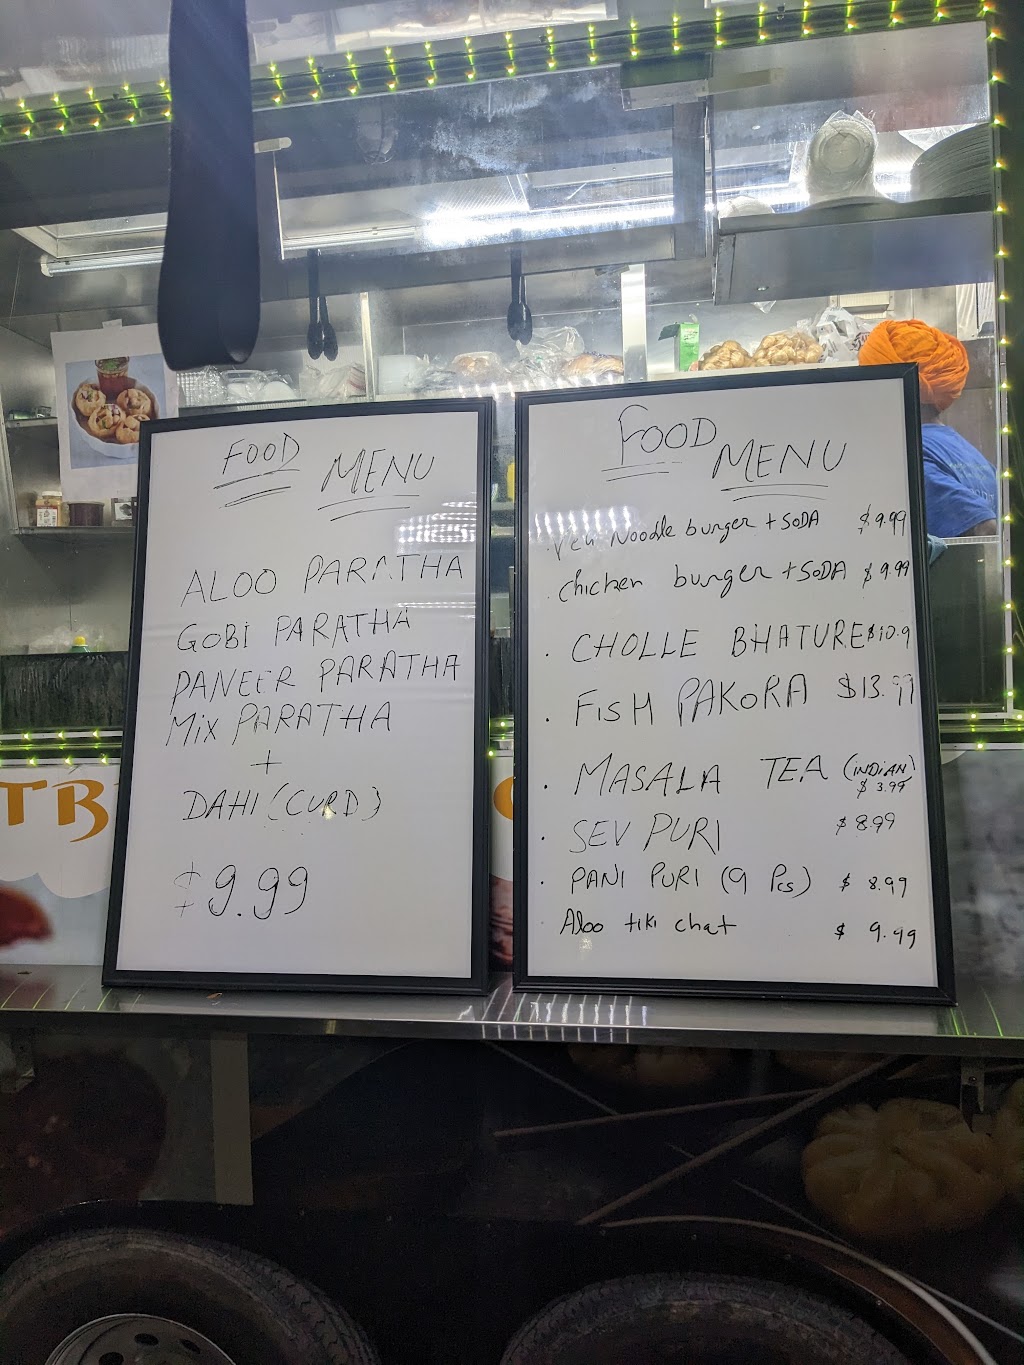 FOOD MENU
ALOO PARATHA
GOBI PARATHA
PANEER PARATHA
Mix PARATHA
+
DAHI (CURD)
$9.99
FOOD MENU
. Veg Noodle burger + SODA $9.99
. chicken burger + SODA $9.99
. CHOLLE BHATURE $10.9
. FISH PAKORA $13.99
. MASALA TEA (INDIAN) $3.99
. SEV PURI $8.99
. PANI PURI (9 Pcs) $8.99
Aloo tiki chat $9.99
TB